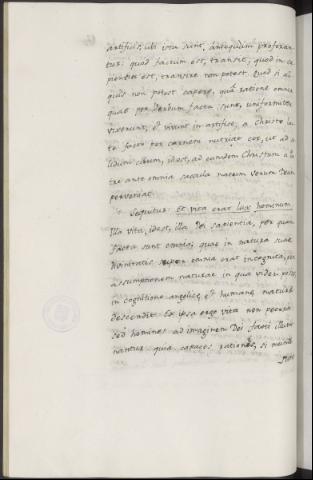 artificis, ubi ista sunt, antequam proferan
tur: quod factum est, transit, quod in sa
pientia est, transire non potest. Quod si ali
quis non potest capere, qua ratione omnia
quae per Verbum facta sunt, uniformiter
vixerunt, et vivunt in artifice, a Christo lac
te facto per carnem nutriat cor, ut ad so
lidum cibum, idest, ad eumdem Christum a Pa
tre ante omnia saecula natum Verum Deum
perveniat.
Sequitur: Et vita erat lux hominum
Illa vita, idest, illa Dei sapientia, per quam
facta sunt omnia, quae in natura suae
divinitatis super omnia erat incognita, per
assumptionem naturae in qua videri posset,
in cognitione angelicae, et humanae naturae
descendit. Et ipsa ergo vita non pecora
sed homines ad imaginem Dei factos illumi
nantur quia capaces rationis, si mundi